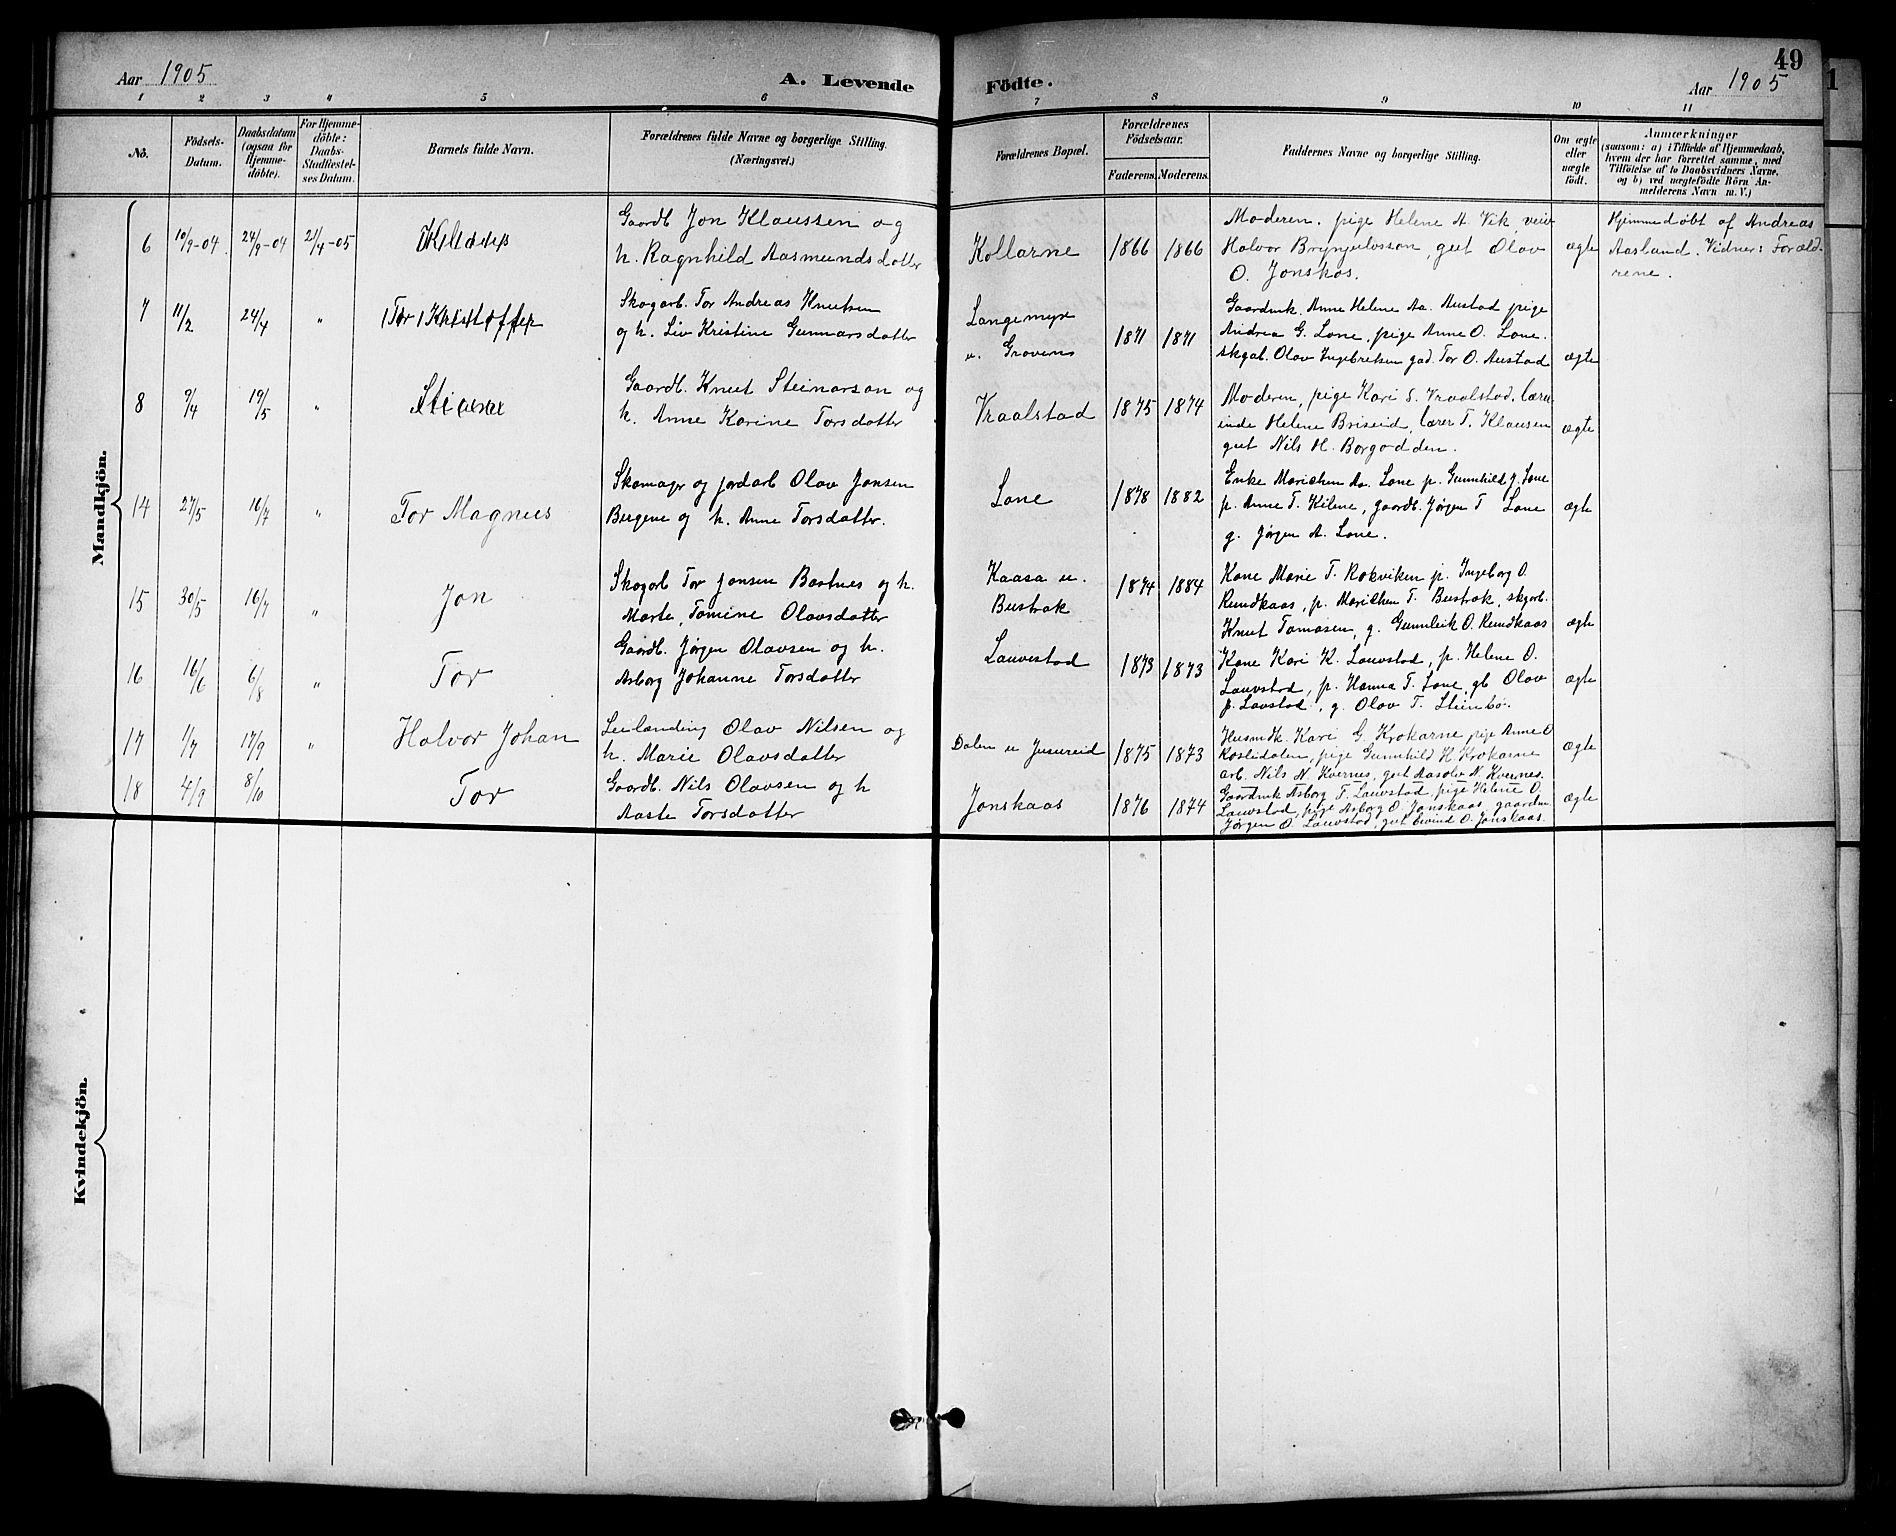 49
Aar 1905
A. Levende
Födte.
Aar 1905
1 2 3 4 5 6 7 8 9 10 11
No.
Födsels-Datum.
Daabsdatum (ogsaa for Hjemme-döbte).
For Hjemme-döbte: Daabs-Stadfæstel-ses Datum.
Barnets fulde Navn.
Forældrenes fulde Navne og borgerlige Stilling. (Næringsvei.)
Forældrenes Bopæl.
Forældrenes Födselsaar.
Faderens. Moderens.
Faddernes Navne og borgerlige Stilling.
Om ægte eller uægte födt.
Anmærkninger
(saasom: a) i Tilfælde af Hjemmedaab,
hvem der har forrettet samme, med
Tilföielse af to Daabsvidners Navne,
og b) ved uægtefödte Börn An-
melderens Navn m. V.)
Mandkjön.
6 10/9-04 24/9-04 21/4-05
Gaardb. Jon Klaussen og
h. Ragnhild Aasmundsdatter
Kollarne 1866 1866
Moderen, pige Helene A. Vik,
Halvor Brynjulvsson, gut Olav
O. Jonskas.
ægte
Hjemmedøbt af Andreas
Aasland. Vidner: Foræld-
rene.
7 11/2 24/4 " (Tor) Kristoffer
Skogarb. Tor Andreas Knutsen
og h. Liv Kristine Gunnarsdatter
Langemyr
u. Gravens 1871 1871
Gaardmk. Anne Helene Aa. Austad pige
Andrea G. Lone, pige Anne O. Lone.
skgab. Olav Ingebretsen gad. Tor O. Austad
ægte
8 9/4 19/5 " Steinar
Gaardb. Knut Steinarson og
h. Anne Karine Torsdatter
Vraalstad 1875 1874
Moderen, pige Kari S. Vraalstad, lærer-
inde Helene Briseid, lærer T. Klausen
gut Nils H. Borgodden.
ægte
14 27/5 16/7 " Tor Magnus
Skomagr og jordarb Olav Jonsen
Bergene og h. Anne Torsdatter.
Lone 1878 1882
Enke Marichen Aa. Lone p. Gunnhild J. Lone
p. Anne T. Kilene, gaardb. Jørgen T Lone
g. Jørgen A. Lone.
ægte
15 30/5 16/7 " Jon
Skogarb Tor Jonsen Bastnes og h.
Marte Tomine Olavsdatter
Kaasa u.
Bustrak 1874 1884
Kone Marie T. Rokviken p. Ingeborg O.
Rundkaas, p. Marichen T. Bustrak, skgarb.
Knut Tomasen, g. Gunnleik O. Rundkaas
ægte
16 16/6 6/8 " Tor
Gaardb. Jørgen Olavsen og h.
Asborg Johanne Torsdatter
Lauvestad 1873 1873
Kone Kari K. Lauvstad, p. Helene O.
Lauvstad, p. Hanna T. Lone, gb Olav
p. Lavstad, g. Olav T. Steinbø.
ægte
17 1/7 17/9 " Halvor Johan
Leilænding Olav Nilsen og
h. Marie Olavsdatter
Dalen u Jusureid 1875 1873
Husmdk. Kari G. Krokarne pige Anne O
Roslidalen, pige Gunnhild H. Krokarne
arb. Nils N. Kvernes, gut Aasolv N. Kvernes.
ægte
18 4/9 8/10 Tor
Gaardb. Nils Olavsen og h
Aaste Torsdatter
Jonskaas 1876 1874
Gaardmk Asborg T. Lauvstad, pige Helene O.
Lauvstad, pige Asborg O. Jonskaas, gaardm
Jørgen O. Lauvstad, gut Eivind O. Jonskaas.
ægte
Kvindekjön.